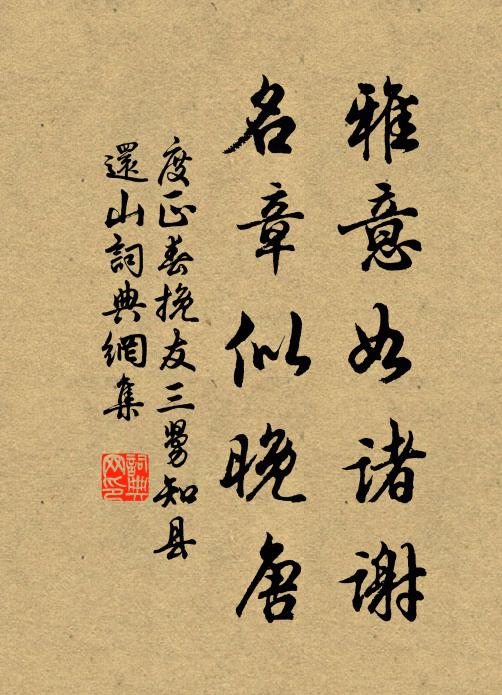 雅意如諸謝
名章似晚唐
度正挽友三舅知县
還山詞典網集
詞典
网印